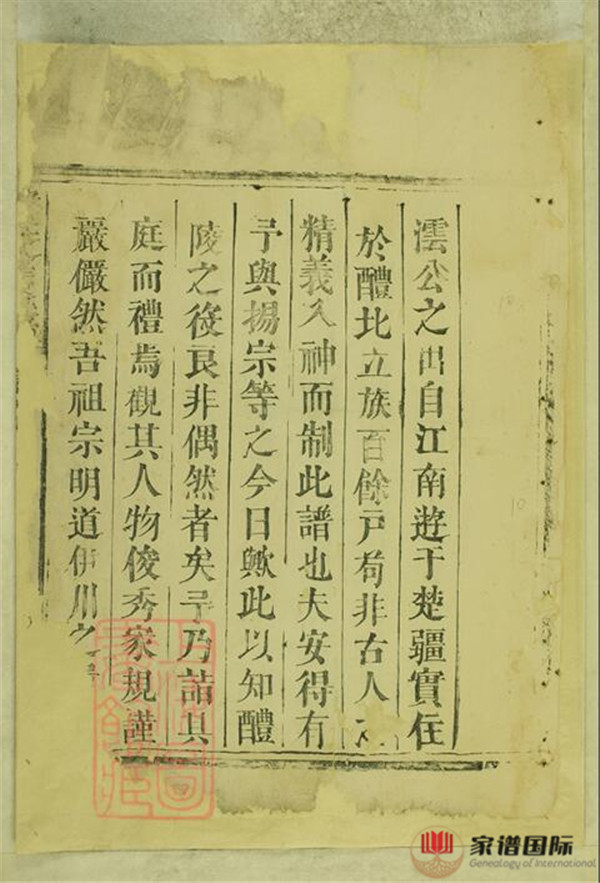 澐公之出自江南遊于楚疆實在
於醴北立族百餘戸苟非右人
精義入神而制此譜也夫安得有
予與揚宗等之今日歟此以知醴
陵之後良非偶然者矣予乃詣其
庭而禮焉觀其人物俊秀家規謹
嚴儼然吾祖宗明道伊川之
家谱国际
Genealogy of International